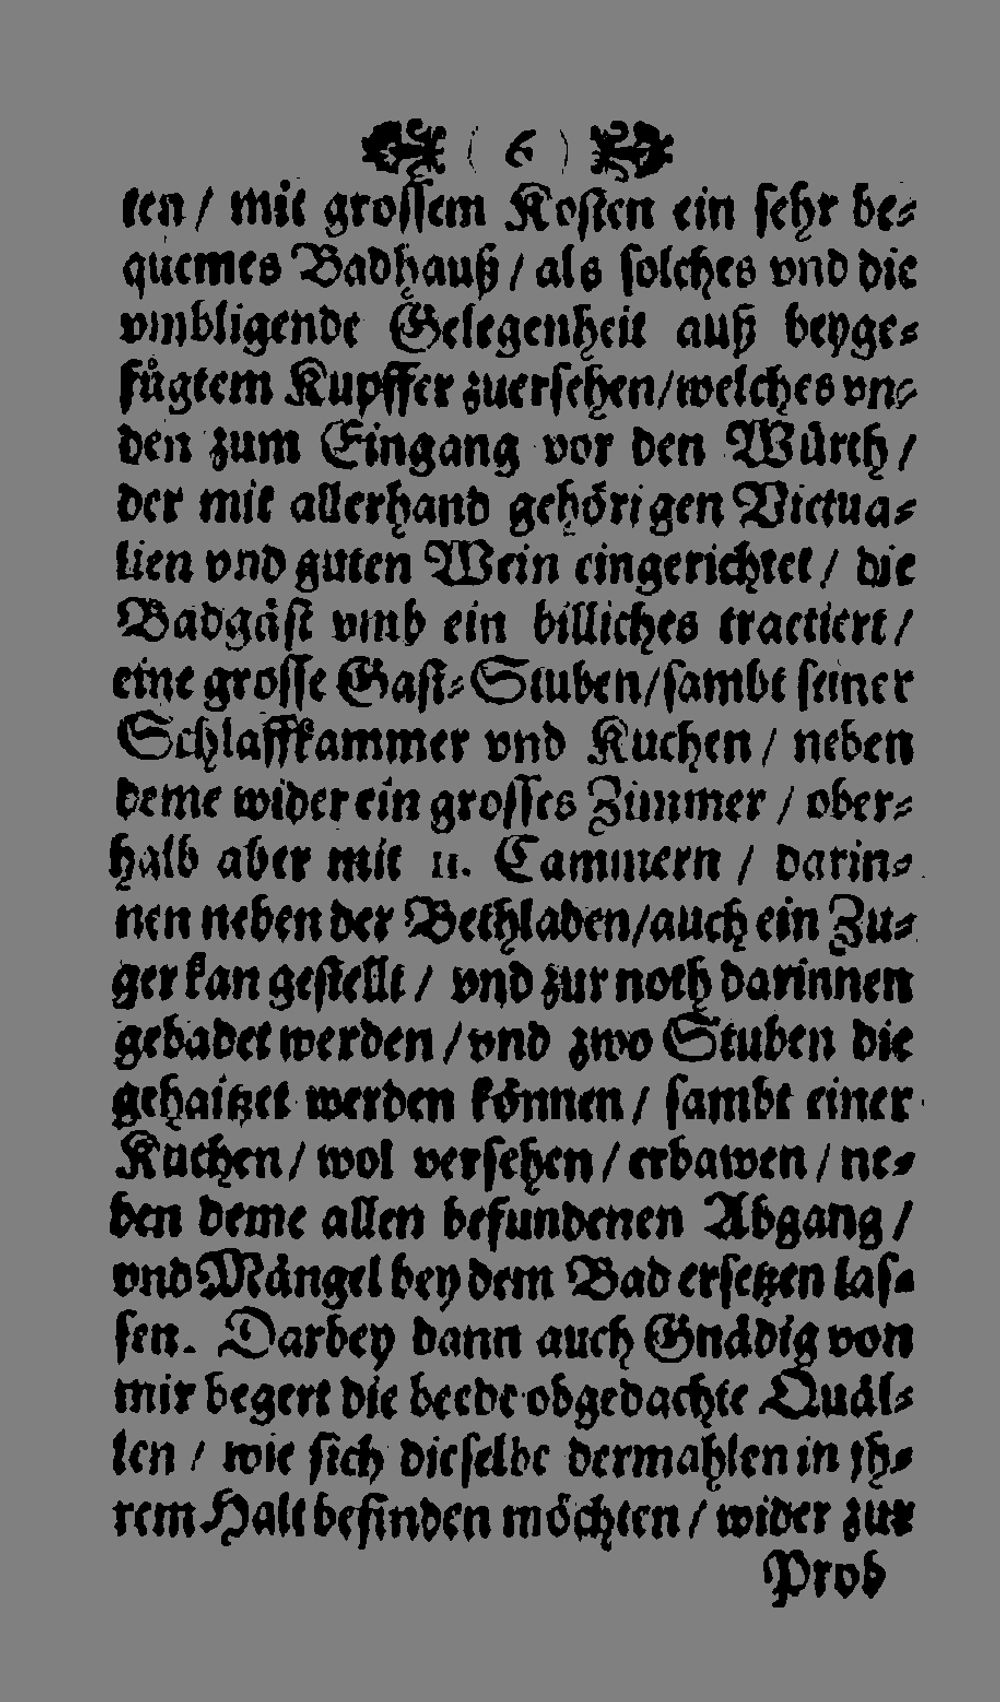 ( 6 )
ten / mit groſſem Koſten ein ſehr be⸗
quemes Badhauß / als ſolches vnd die
vmbligende Gelegenheit auß beyge⸗
fuͤgtem Kupffer zuerſehen / welches vn⸗
den zum Eingang vor den Wuͤrth /
der mit allerhand gehoͤrigen Victua⸗
lien vnd guten Wein eingerichtet / die
Badgaͤſt vmb ein billiches tractiert /
eine groſſe Gaſt⸗Stuben / ſambt ſeiner
Schlaffkammer vnd Kuchen / neben
deme wider ein groſſes Zimmer / ober⸗
halb aber mit 11. Cammern / darin⸗
nen neben der Bethladen / auch ein Zu⸗
ger kan geſtellt / vnd zur noth darinnen
gebadet werden / vnd zwo Stuben die
gehaitzet werden koͤnnen / ſambt einer
Kuchen / wol verſehen / erbawen / ne⸗
ben deme allen befundenen Abgang /
vnd Maͤngel bey dem Bad erſetzen laſ⸗
ſen. Darbey dann auch Gnaͤdig von
mir begert die beede obgedachte Quaͤl⸗
len / wie ſich dieſelbe dermahlen in jh⸗
rem Halt befinden moͤchten / wider zur
Prob